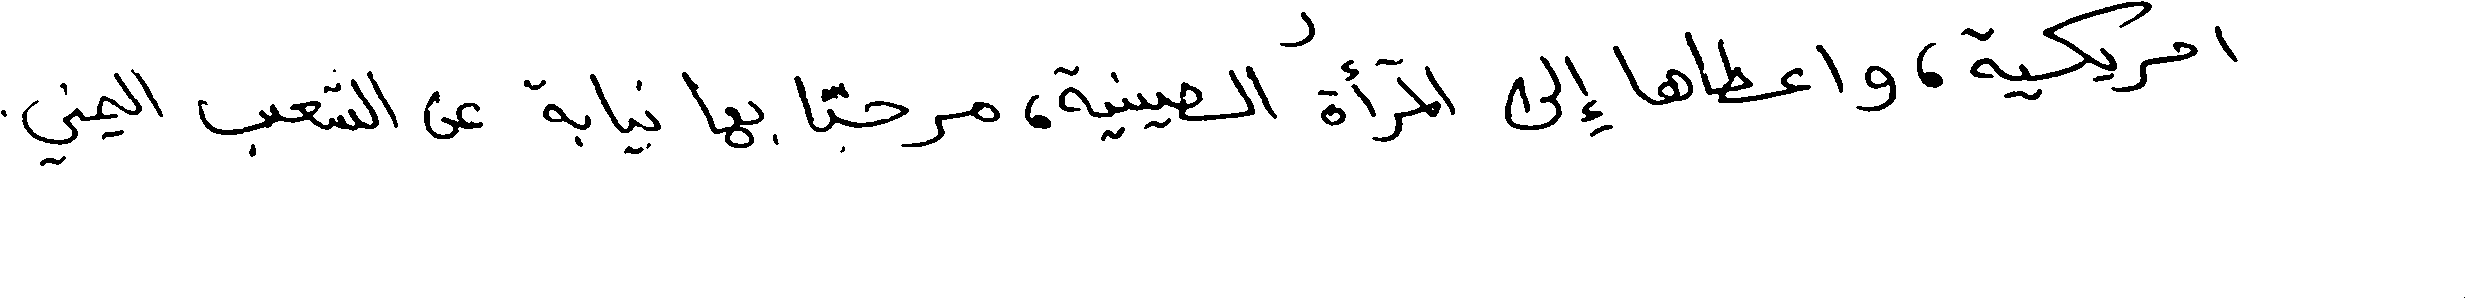 امريكية، واعطاها إلى المرأة الصينية، مرحبًا بها نيابة عن الشعب اليمني.